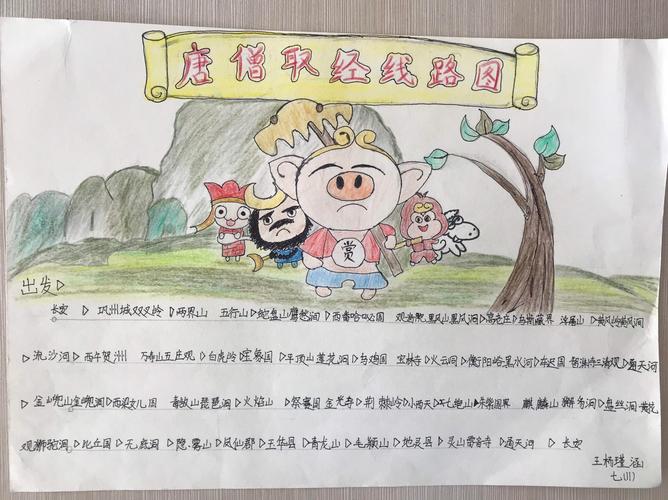 唐僧取经线路图
赏
出发▷
长安 ▷ 巩州城双叉岭 ▷两界山 五行山▷蛇盘山鹰愁涧 ▷西番哈咇国 观音院黑风山黑风洞▷高老庄▷乌斯藏界 浮屠山 ▷黄风岭黄风洞
▷ 流沙河 ▷ 西牛贺州 万寿山五庄观 ▷白虎岭▷宝象国 ▷平顶山莲花洞 ▷乌鸡国 宝林寺▷火云洞 ▷衡阳峪黑水河▷车迟国 三清观▷通天河
▷ 金山兜山金兜洞▷西梁女儿国 毒敌山琵琶洞▷火焰山 ▷祭赛国 金光寺▷荆棘岭▷小西天▷七绝山▷朱紫国界 麒麟山獬豸洞▷盘丝洞 黄花
观狮驼洞 ▷比丘国 ▷无底洞 ▷隐雾山▷凤仙郡▷玉华县▷青龙山 ▷毛颖山 ▷地灵县 ▷灵山雷音寺▷通天河 ▷ 长安
王杨瑾涵
七(1)